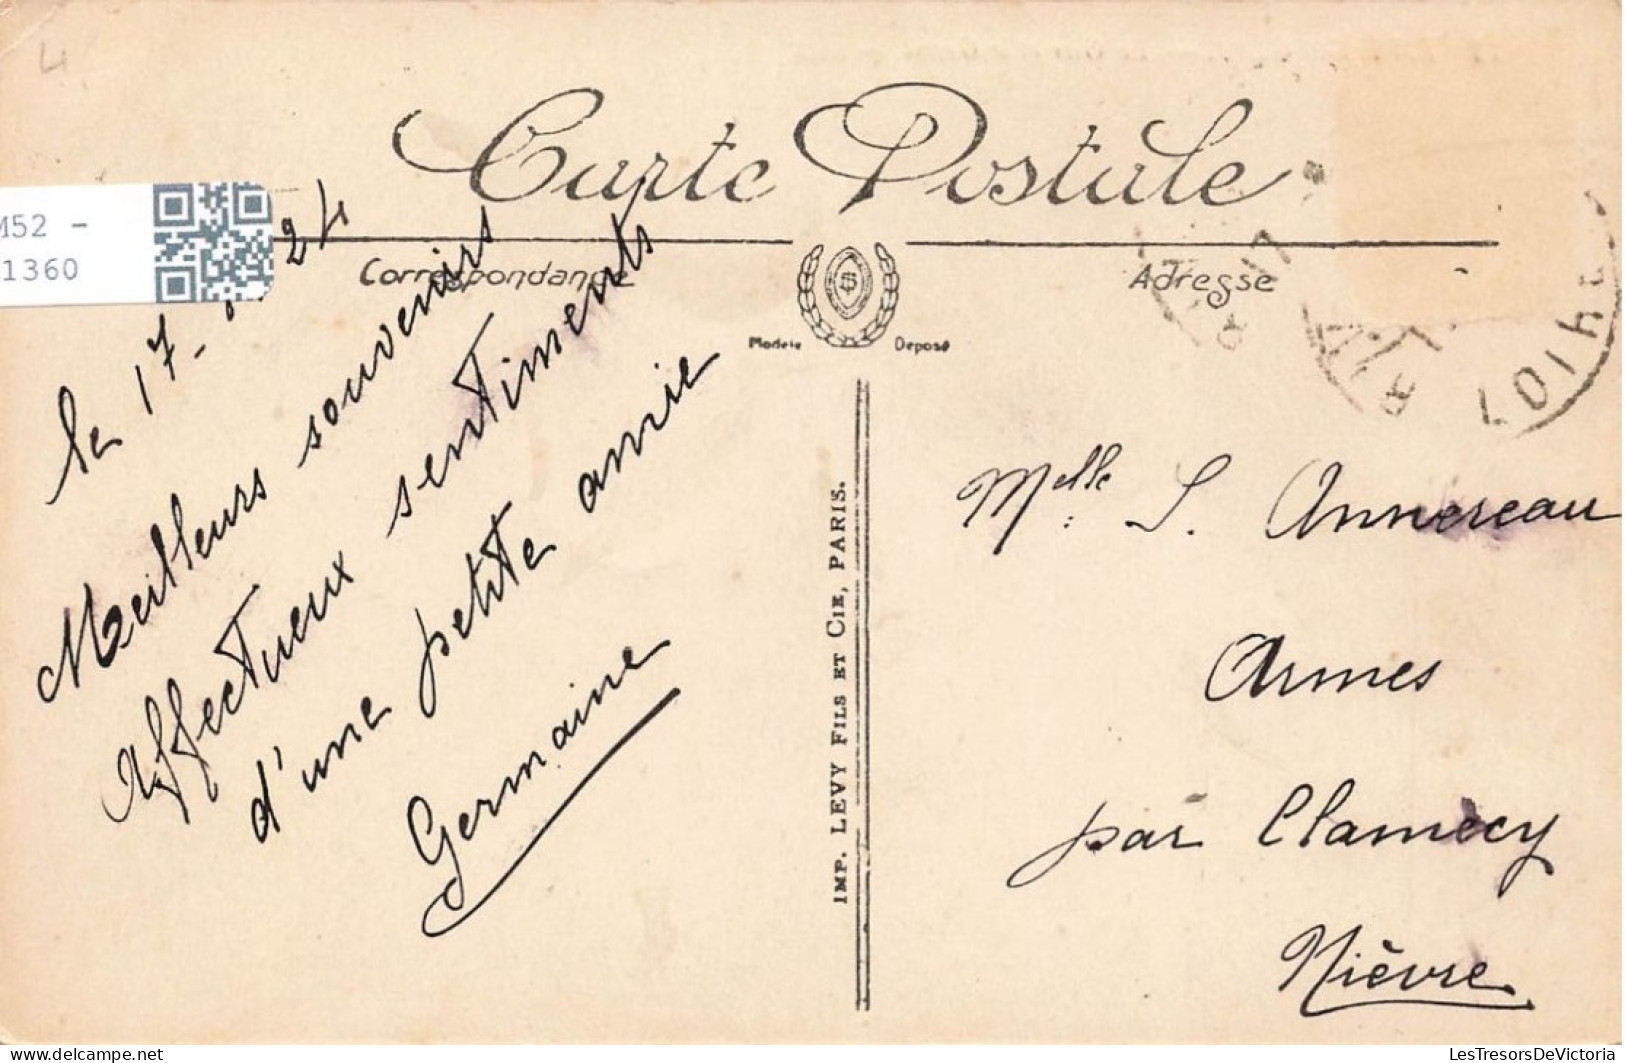 4
Carte Postale
M52 -
1360
Correspondance
Adresse
Modèle Déposé
Le 17 - 24
Meilleurs souvenirs
Affectueux sentiments
d'une petite amie
Germaine
IMP. LEVY FILS ET CIE, PARIS.
Melle: S. Annereau
Armes
par Clamecy
Nièvre
delcampe.net
LesTresorsDeVictoria